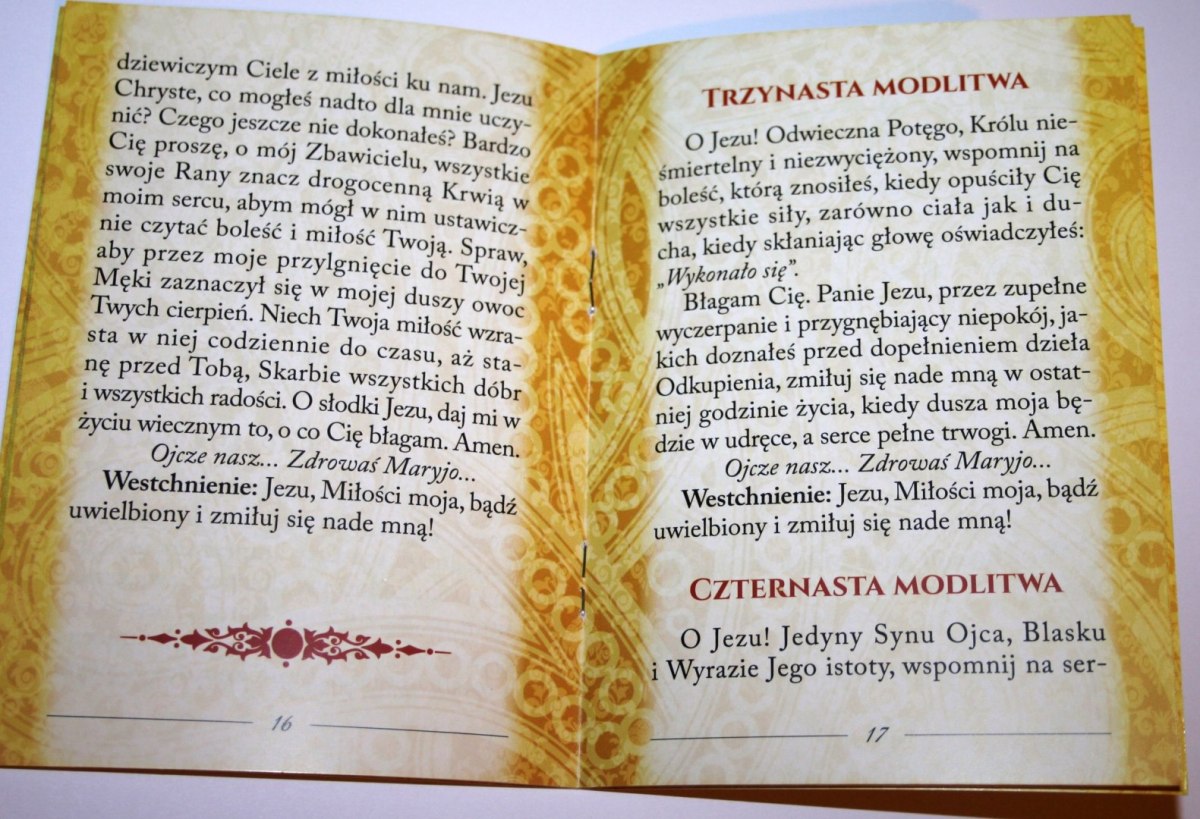 dziewiczym Ciele z miłości ku nam. Jezu
Chryste, co mogłeś nadto dla mnie uczy-
nić? Czego jeszcze nie dokonałeś? Bardzo
Cię proszę, o mój Zbawicielu, wszystkie
swoje Rany znacz drogocenną Krwią w
moim sercu, abym mógł w nim ustawicz-
nie czytać boleść i miłość Twoją. Spraw,
aby przez moje przylgnięcie do Twojej
Męki zaznaczył się w mojej duszy owoc
Twych cierpień. Niech Twoja miłość wzra-
sta w niej codziennie do czasu, aż sta-
nę przed Tobą, Skarbie wszystkich dóbr
i wszystkich radości. O słodki Jezu, daj mi w
życiu wiecznym to, o co Cię błagam. Amen.
Ojcze nasz... Zdrowaś Maryjo...
Westchnienie: Jezu, Miłości moja, bądź
uwielbiony i zmiłuj się nade mną!
16
TRZYNASTA MODLITWA
O Jezu! Odwieczna Potęgo, Królu nie-
śmiertelny i niezwyciężony, wspomnij na
boleść, którą znosiłeś, kiedy opuściły Cię
wszystkie siły, zarówno ciała jak i du-
cha, kiedy skłaniając głowę oświadczyłeś:
„Wykonało się”.
Błagam Cię. Panie Jezu, przez zupełne
wyczerpanie i przygnębiający niepokój, ja-
kich doznałeś przed dopełnieniem dzieła
Odkupienia, zmiłuj się nade mną w ostat-
niej godzinie życia, kiedy dusza moja bę-
dzie w udręce, a serce pełne trwogi. Amen.
Ojcze nasz... Zdrowaś Maryjo...
Westchnienie: Jezu, Miłości moja, bądź
uwielbiony i zmiłuj się nade mną!
CZTERNASTA MODLITWA
O Jezu! Jedyny Synu Ojca, Blasku
i Wyrazie Jego istoty, wspomnij na ser-
17